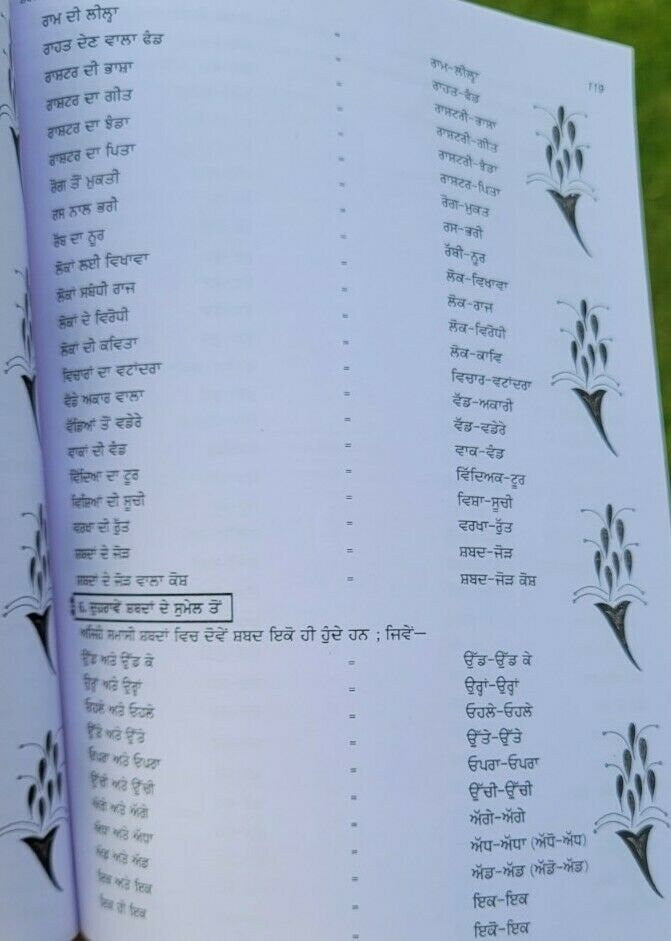 119
ਰਾਮ ਦੀ ਲੀਲ੍ਹਾ = ਰਾਮ-ਲੀਲ੍ਹਾ
ਰਾਹਤ ਦੇਣ ਵਾਲਾ ਫੰਡ = ਰਾਹਤ-ਫੰਡ
ਰਾਸ਼ਟਰ ਦੀ ਭਾਸ਼ਾ = ਰਾਸ਼ਟਰੀ-ਭਾਸ਼ਾ
ਰਾਸ਼ਟਰ ਦਾ ਗੀਤ = ਰਾਸ਼ਟਰੀ-ਗੀਤ
ਰਾਸ਼ਟਰ ਦਾ ਝੰਡਾ = ਰਾਸ਼ਟਰੀ-ਝੰਡਾ
ਰਾਸ਼ਟਰ ਦਾ ਪਿਤਾ = ਰਾਸ਼ਟਰ-ਪਿਤਾ
ਰੋਗ ਤੋਂ ਮੁਕਤੀ = ਰੋਗ-ਮੁਕਤ
ਰਸ ਨਾਲ ਭਰੀ = ਰਸ-ਭਰੀ
ਰੱਬ ਦਾ ਨੂਰ = ਰੱਬੀ-ਨੂਰ
ਲੋਕਾਂ ਲਈ ਵਿਖਾਵਾ = ਲੋਕ-ਵਿਖਾਵਾ
ਲੋਕਾਂ ਸਬੰਧੀ ਰਾਜ = ਲੋਕ-ਰਾਜ
ਲੋਕਾਂ ਦੇ ਵਿਰੋਧੀ = ਲੋਕ-ਵਿਰੋਧੀ
ਲੋਕਾਂ ਦੀ ਕਵਿਤਾ = ਲੋਕ-ਕਾਵਿ
ਵਿਚਾਰਾਂ ਦਾ ਵਟਾਂਦਰਾ = ਵਿਚਾਰ-ਵਟਾਂਦਰਾ
ਵੱਡੇ ਅਕਾਰ ਵਾਲਾ = ਵੱਡ-ਅਕਾਰੀ
ਵੱਡਿਆਂ ਤੋਂ ਵਡੇਰੇ = ਵੱਡ-ਵਡੇਰੇ
ਵਾਕਾਂ ਦੀ ਵੰਡ = ਵਾਕ-ਵੰਡ
ਵਿੱਦਿਆ ਦਾ ਟੂਰ = ਵਿੱਦਿਅਕ-ਟੂਰ
ਵਿਸ਼ਿਆਂ ਦੀ ਸੂਚੀ = ਵਿਸ਼ਾ-ਸੂਚੀ
ਵਰਖਾ ਦੀ ਰੁੱਤ = ਵਰਖਾ-ਰੁੱਤ
ਸ਼ਬਦਾਂ ਦੇ ਜੋੜ = ਸ਼ਬਦ-ਜੋੜ
ਸ਼ਬਦਾਂ ਦੇ ਜੋੜ ਵਾਲਾ ਕੋਸ਼ = ਸ਼ਬਦ-ਜੋੜ ਕੋਸ਼
6. ਦੁਹਰਾਵੇਂ ਸ਼ਬਦਾਂ ਦੇ ਸੁਮੇਲ ਤੋਂ
ਅਜਿਹੇ ਸਮਾਸੀ ਸ਼ਬਦਾਂ ਵਿਚ ਦੋਵੇਂ ਸ਼ਬਦ ਇਕੋ ਹੀ ਹੁੰਦੇ ਹਨ ; ਜਿਵੇਂ—
ਉੱਡ ਅਤੇ ਉੱਡ ਕੇ = ਉੱਡ-ਉੱਡ ਕੇ
ਉਰ੍ਹਾਂ ਅਤੇ ਉਰ੍ਹਾਂ = ਉਰ੍ਹਾਂ-ਉਰ੍ਹਾਂ
ਓਹਲੇ ਅਤੇ ਓਹਲੇ = ਓਹਲੇ-ਓਹਲੇ
ਉੱਤੇ ਅਤੇ ਉੱਤੇ = ਉੱਤੇ-ਉੱਤੇ
ਓਪਰਾ ਅਤੇ ਓਪਰਾ = ਓਪਰਾ-ਓਪਰਾ
ਉੱਚੀ ਅਤੇ ਉੱਚੀ = ਉੱਚੀ-ਉੱਚੀ
ਅੱਗੇ ਅਤੇ ਅੱਗੇ = ਅੱਗੇ-ਅੱਗੇ
ਅੱਧਾ ਅਤੇ ਅੱਧਾ = ਅੱਧ-ਅੱਧਾ (ਅੱਧੋ-ਅੱਧ)
ਅੱਡ ਅਤੇ ਅੱਡ = ਅੱਡ-ਅੱਡ (ਅੱਡੋ-ਅੱਡ)
ਇਕ ਅਤੇ ਇਕ = ਇਕ-ਇਕ
ਇਕ ਹੀ ਇਕ = ਇਕੋ-ਇਕ